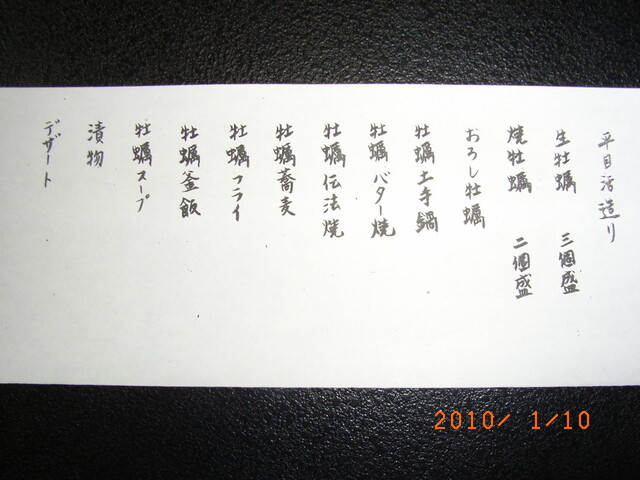 平目活造り
生牡蠣 三個盛
焼牡蠣 二個盛
おろし牡蠣
牡蠣土手鍋
牡蠣バター焼
牡蠣伝法焼
牡蠣蕎麦
牡蠣フライ
牡蠣釜飯
牡蠣スープ
漬物
デザート
2010/ 1/10